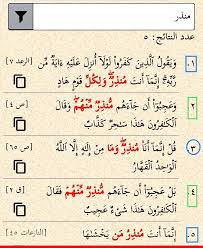 منذر
عدد النتائج: ٥
١. وَيَقُولُ ٱلَّذِينَ كَفَرُوا۟ لَوْلَآ أُنزِلَ عَلَيْهِ ءَايَةٌ مِّن [الرعد ٧]
رَّبِّهِۦٓ إِنَّمَآ أَنتَ مُنذِرٌ وَلِكُلِّ قَوْمٍ هَادٍ
٢ وَعَجِبُوٓا۟ أَن جَآءَهُم مُّنذِرٌ مِّنْهُمْ وَقَالَ [ص ٤]
ٱلْكَـٰفِرُونَ هَـٰذَا سَـٰحِرٌ كَذَّابٌ
٣ قُلْ إِنَّمَآ أَنَا۠ مُنذِرٌ وَمَا مِنْ إِلَـٰهٍ إِلَّا ٱللَّهُ [ص ٦٥]
ٱلْوَٰحِدُ ٱلْقَهَّارُ
٤ بَلْ عَجِبُوٓا۟ أَن جَآءَهُم مُّنذِرٌ مِّنْهُمْ فَقَالَ [ق ٢]
ٱلْكَـٰفِرُونَ هَـٰذَا شَىْءٌ عَجِيبٌ
٥. إِنَّمَآ أَنتَ مُنذِرُ مَن يَخْشَىٰهَا [النازعات ٤٥]